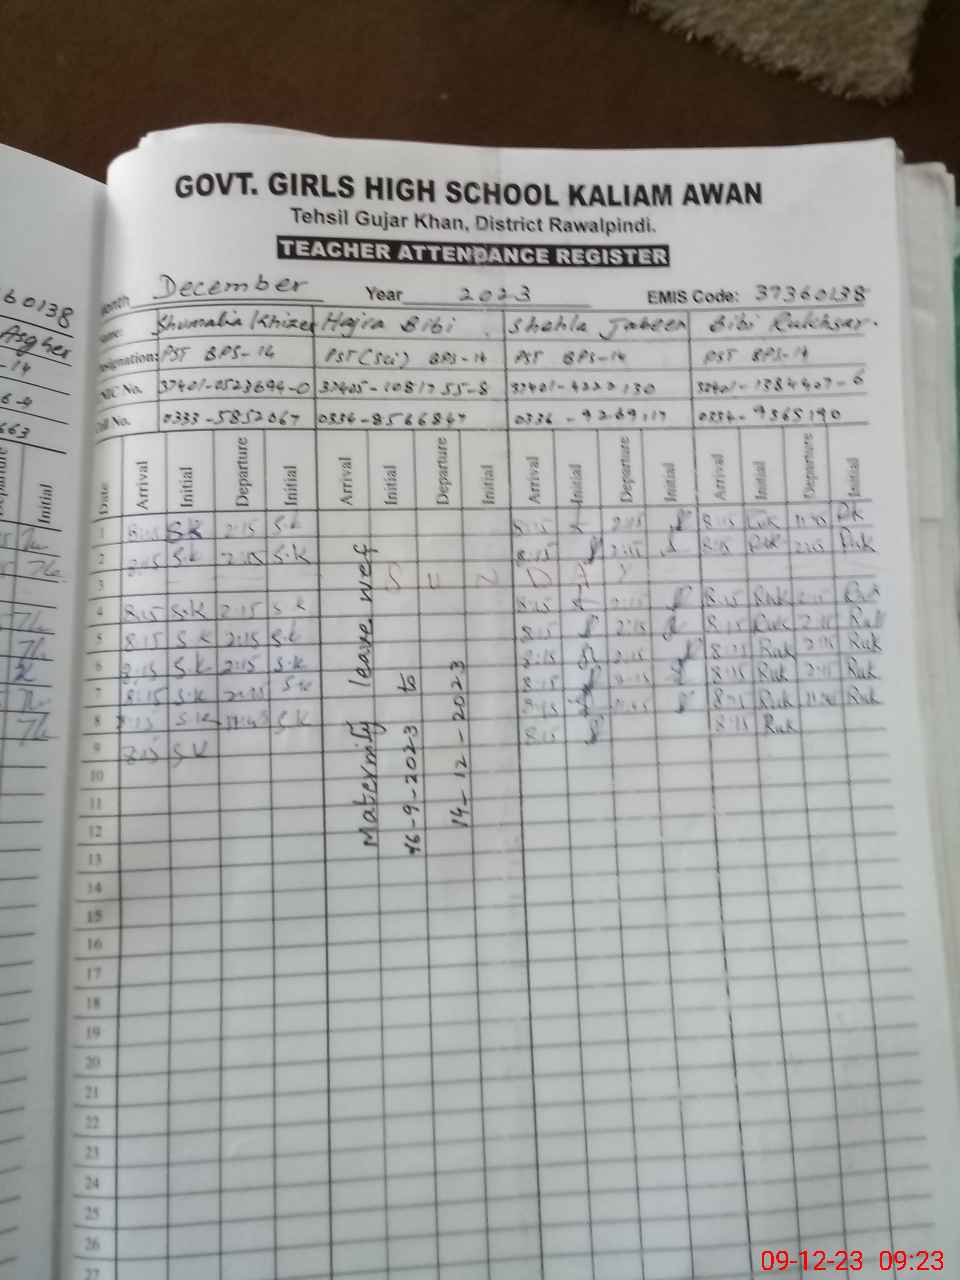 GOVT. GIRLS HIGH SCHOOL KALIAM AWAN
Tehsil Gujar Khan, District Rawalpindi.
TEACHER ATTENDANCE REGISTER
Month December Year 2023 EMIS Code: 37360138
Name: Shumaila Khizer Hajra Bibi Shehla Jabeen Bibi Rukhsar.
Designation: PST BPS-14 PST (Sci) BPS-14 PST BPS-14 PST BPS-14
CNIC No.
Cell No. 0333-5852067 0334-8566847
Date Arrival Initial Departure Initial Arrival Initial Departure Initial Arrival Initial Departure Initial Arrival Initial Departure Initial
1 8:15 S.K 2:15 S.K 8:15 2:15 8:15 Ruk Ruk
2 8:15 S.K 2:15 S.K 8:15 2:15 8:15 Ruk 2:15 Ruk
3 S U N D A Y
4 8:15 S.K 2:15 S.K 8:15 2:15 8:15 Ruk 2:15 Ruk
5 8:15 S.K 2:15 S.K 8:15 2:15 8:15 Ruk 2:15 Ruk
6 8:15 S.K 2:15 S.K 8:15 2:15 8:15 Ruk 2:15 Ruk
7 8:15 S.K 2:15 S.K 8:15 2:15 8:15 Ruk 2:15 Ruk
8 8:15 S.K S.K 8:15 8:15 Ruk Ruk
9 8:15 S.K 8:15 8:15 Ruk
Maternity leave wef
16-9-2023 to
14-12-2023
10
11
12
13
14
15
16
17
18
19
20
21
22
23
24
25
26
27
60138
Asgher
-14
663
Initial
09-12-23 09:23